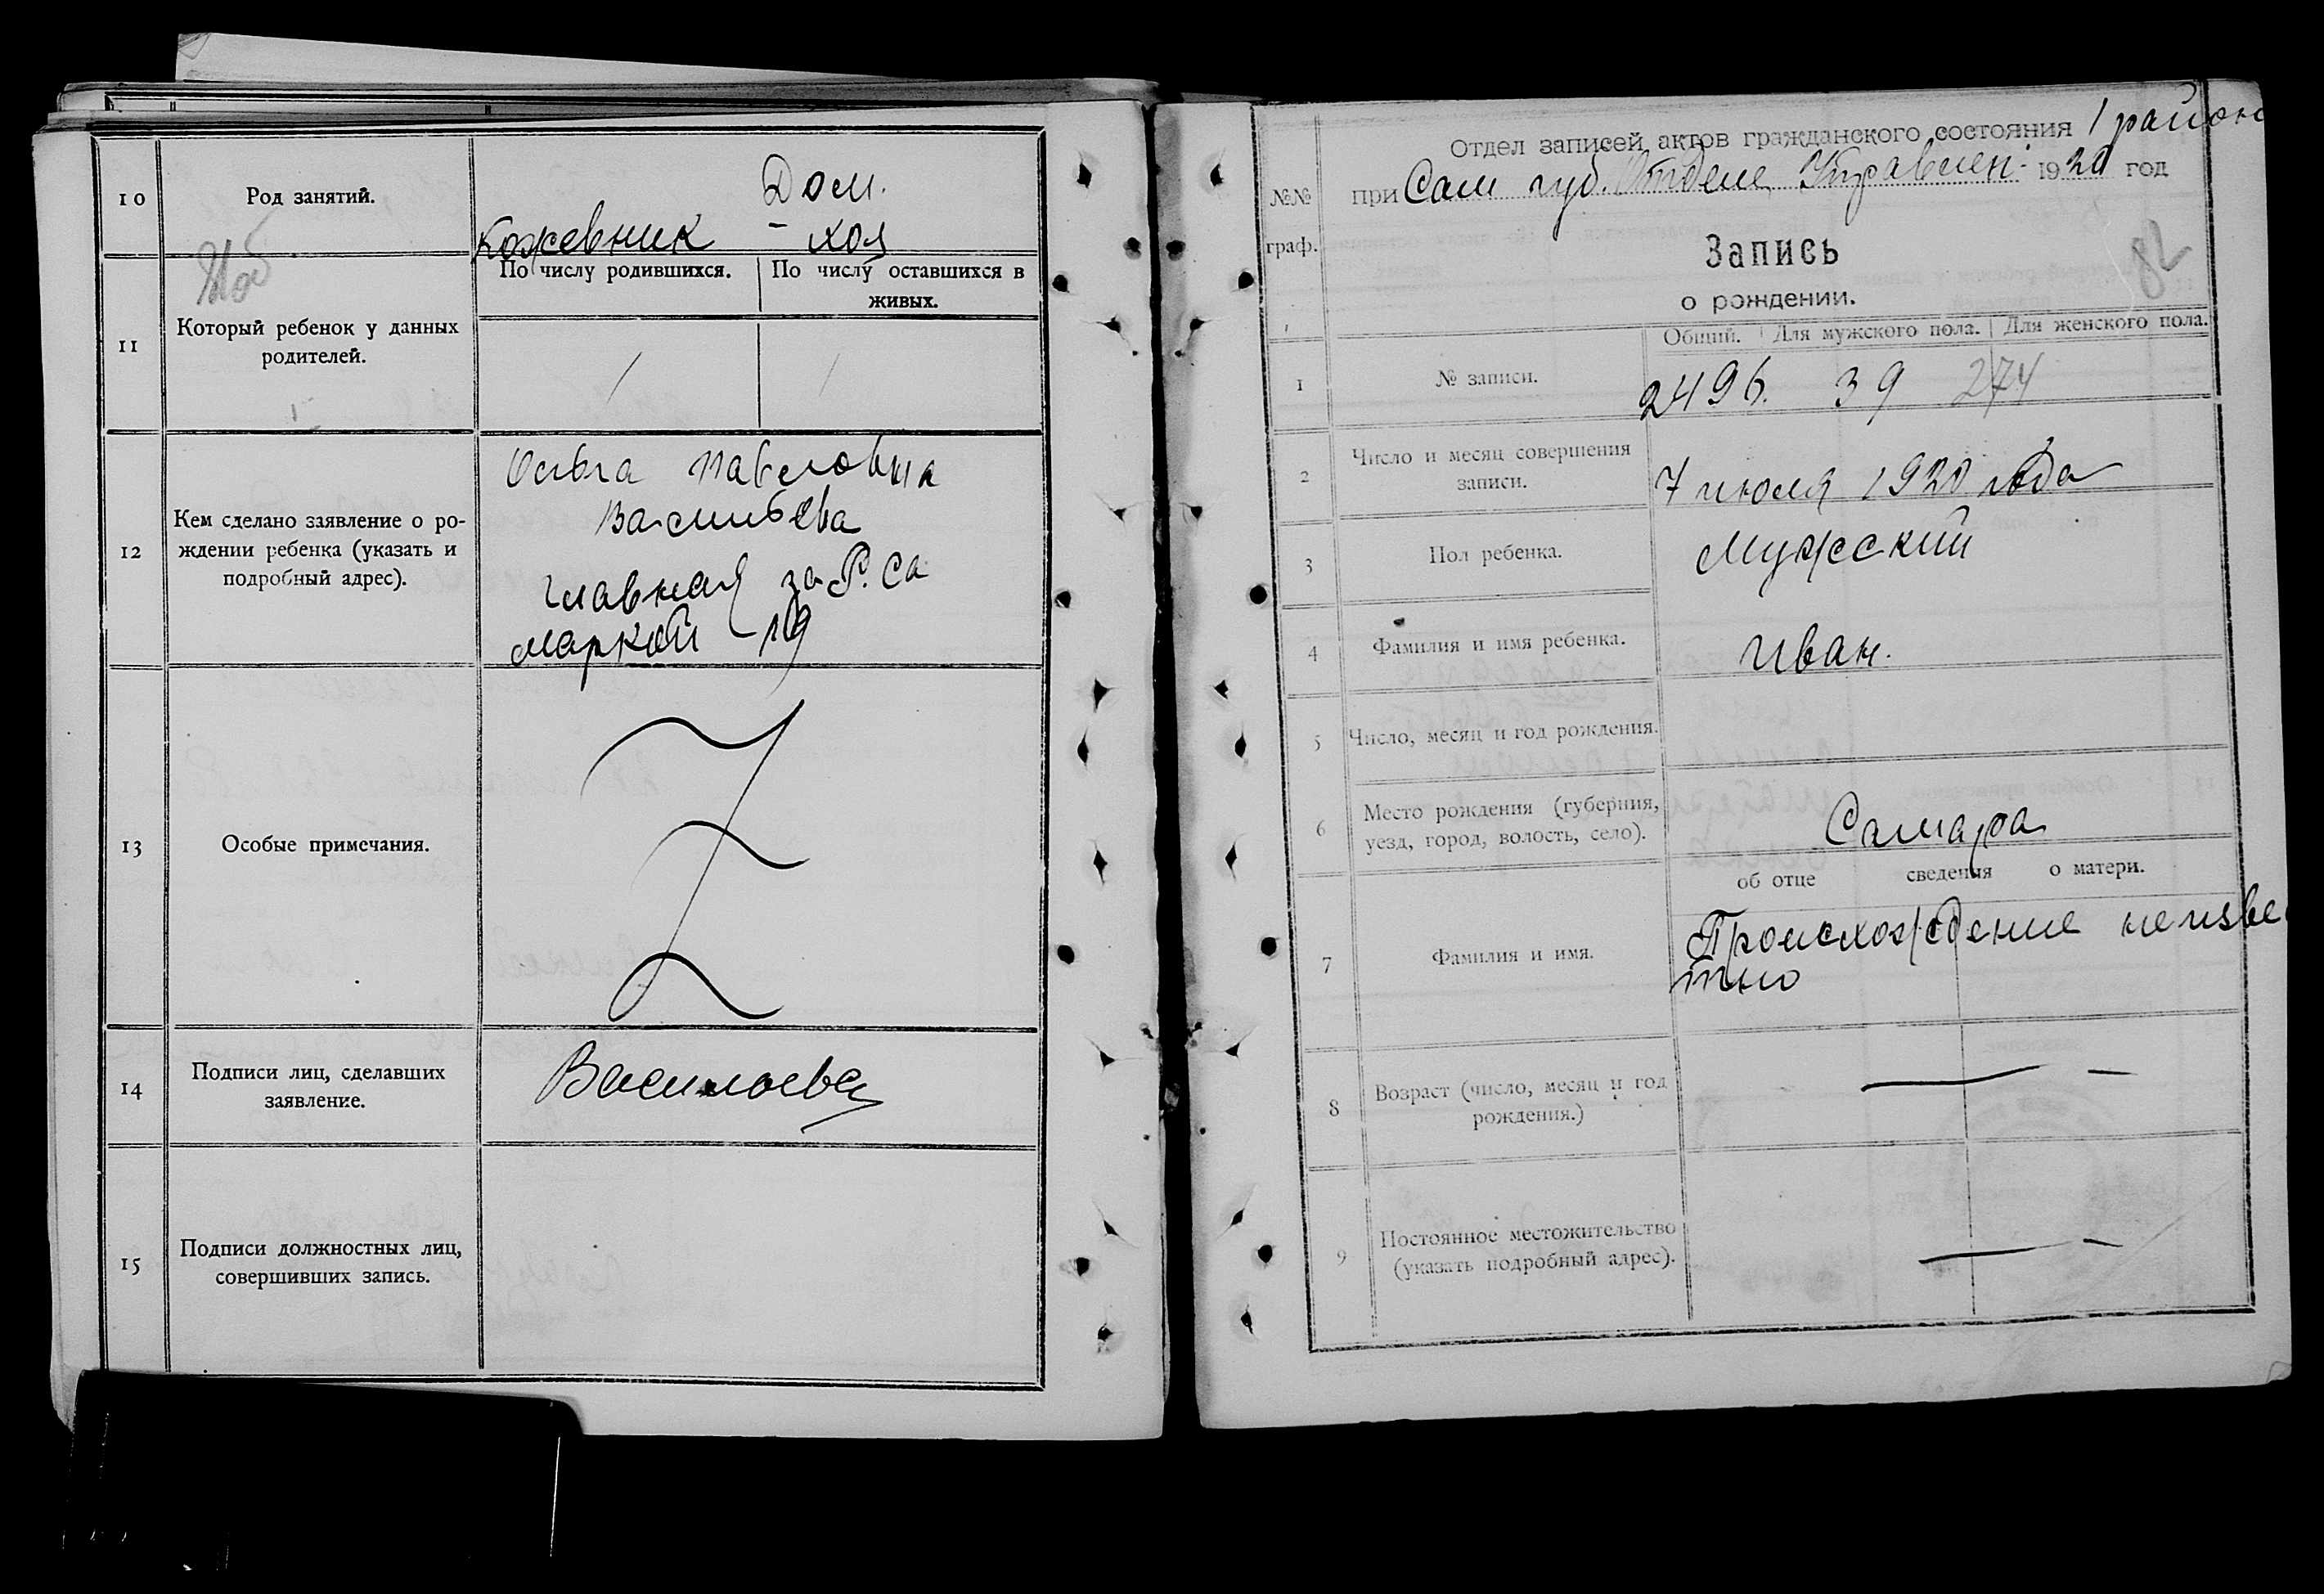 10
Род занятий.
Кожевник
Дом.
- хоз
11
Который ребенок у данных
родителей.
По числу родившихся.
По числу оставшихся в
живых.
1
1
12
Кем сделано заявление о ро-
ждении ребенка (указать и
подробный адрес).
Ольга Павловна
Васильева
Главная за Р. Са
маркой 19
13
Особые примечания.
14
Подписи лиц, сделавших
заявление.
Васильева
15
Подписи должностных лиц,
совершивших запись.
Отдел записей актов гражданского состояния 1 район
при Сам губ. Отделе Управлен. 1920 год
№№
граф.
Запись
о рождении.
82
Общий.
Для мужского пола.
Для женского пола.
1
№ записи.
2496. 39 274
2
Число и месяц совершения
записи.
7 июля 1920 года
3
Пол ребенка.
Мужской
4
Фамилия и имя ребенка.
Иван.
5
Число, месяц и год рождения.
6
Место рождения (губерния,
уезд, город, волость, село).
Самара
об отце сведения о матери.
7
Фамилия и имя.
Происхождение неизве
тно
8
Возраст (число, месяц и год
рождения.)
9
Постоянное местожительство
(указать подробный адрес).